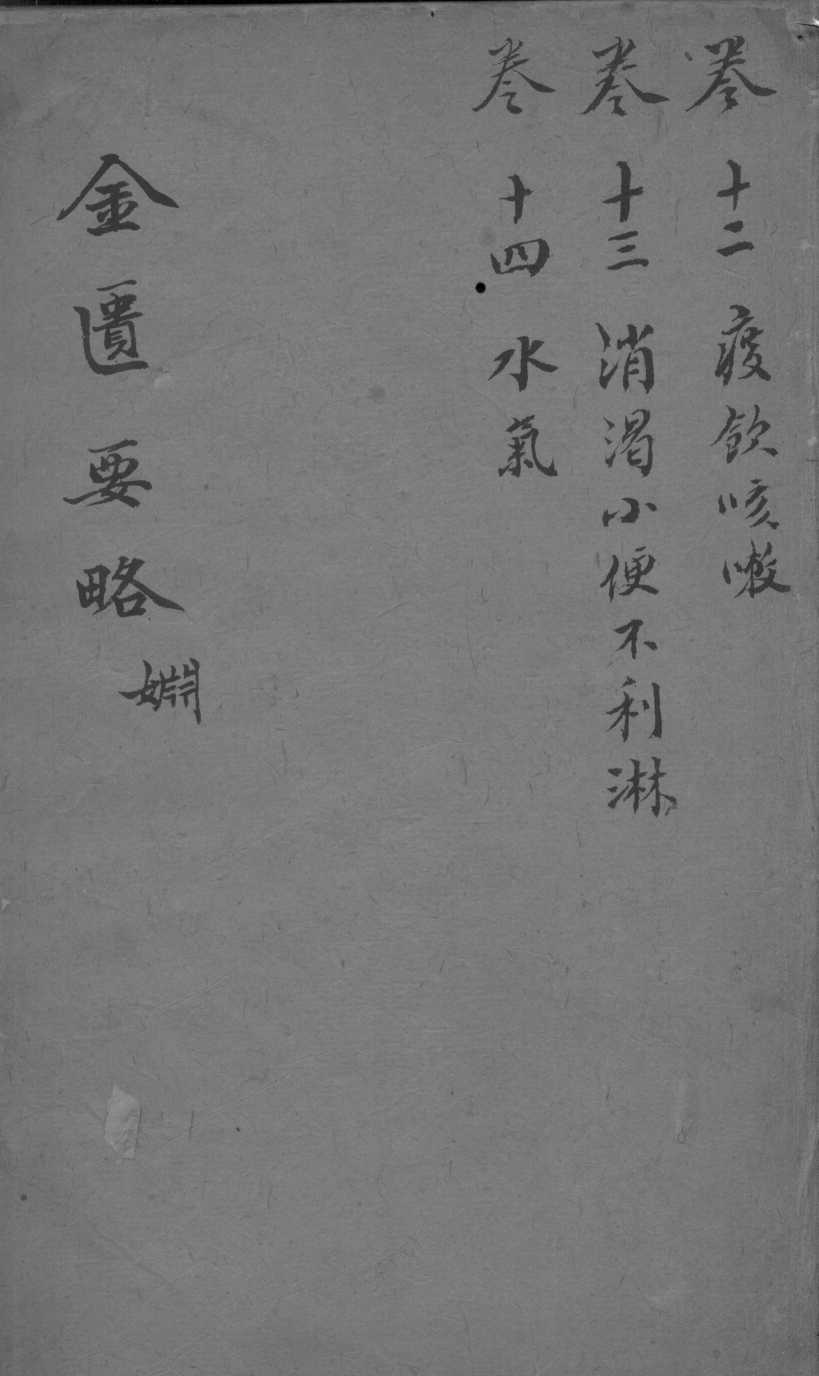 卷十二痰飲咳嗽
卷十三消渴小便不利淋
卷十四水氣
金匱要略